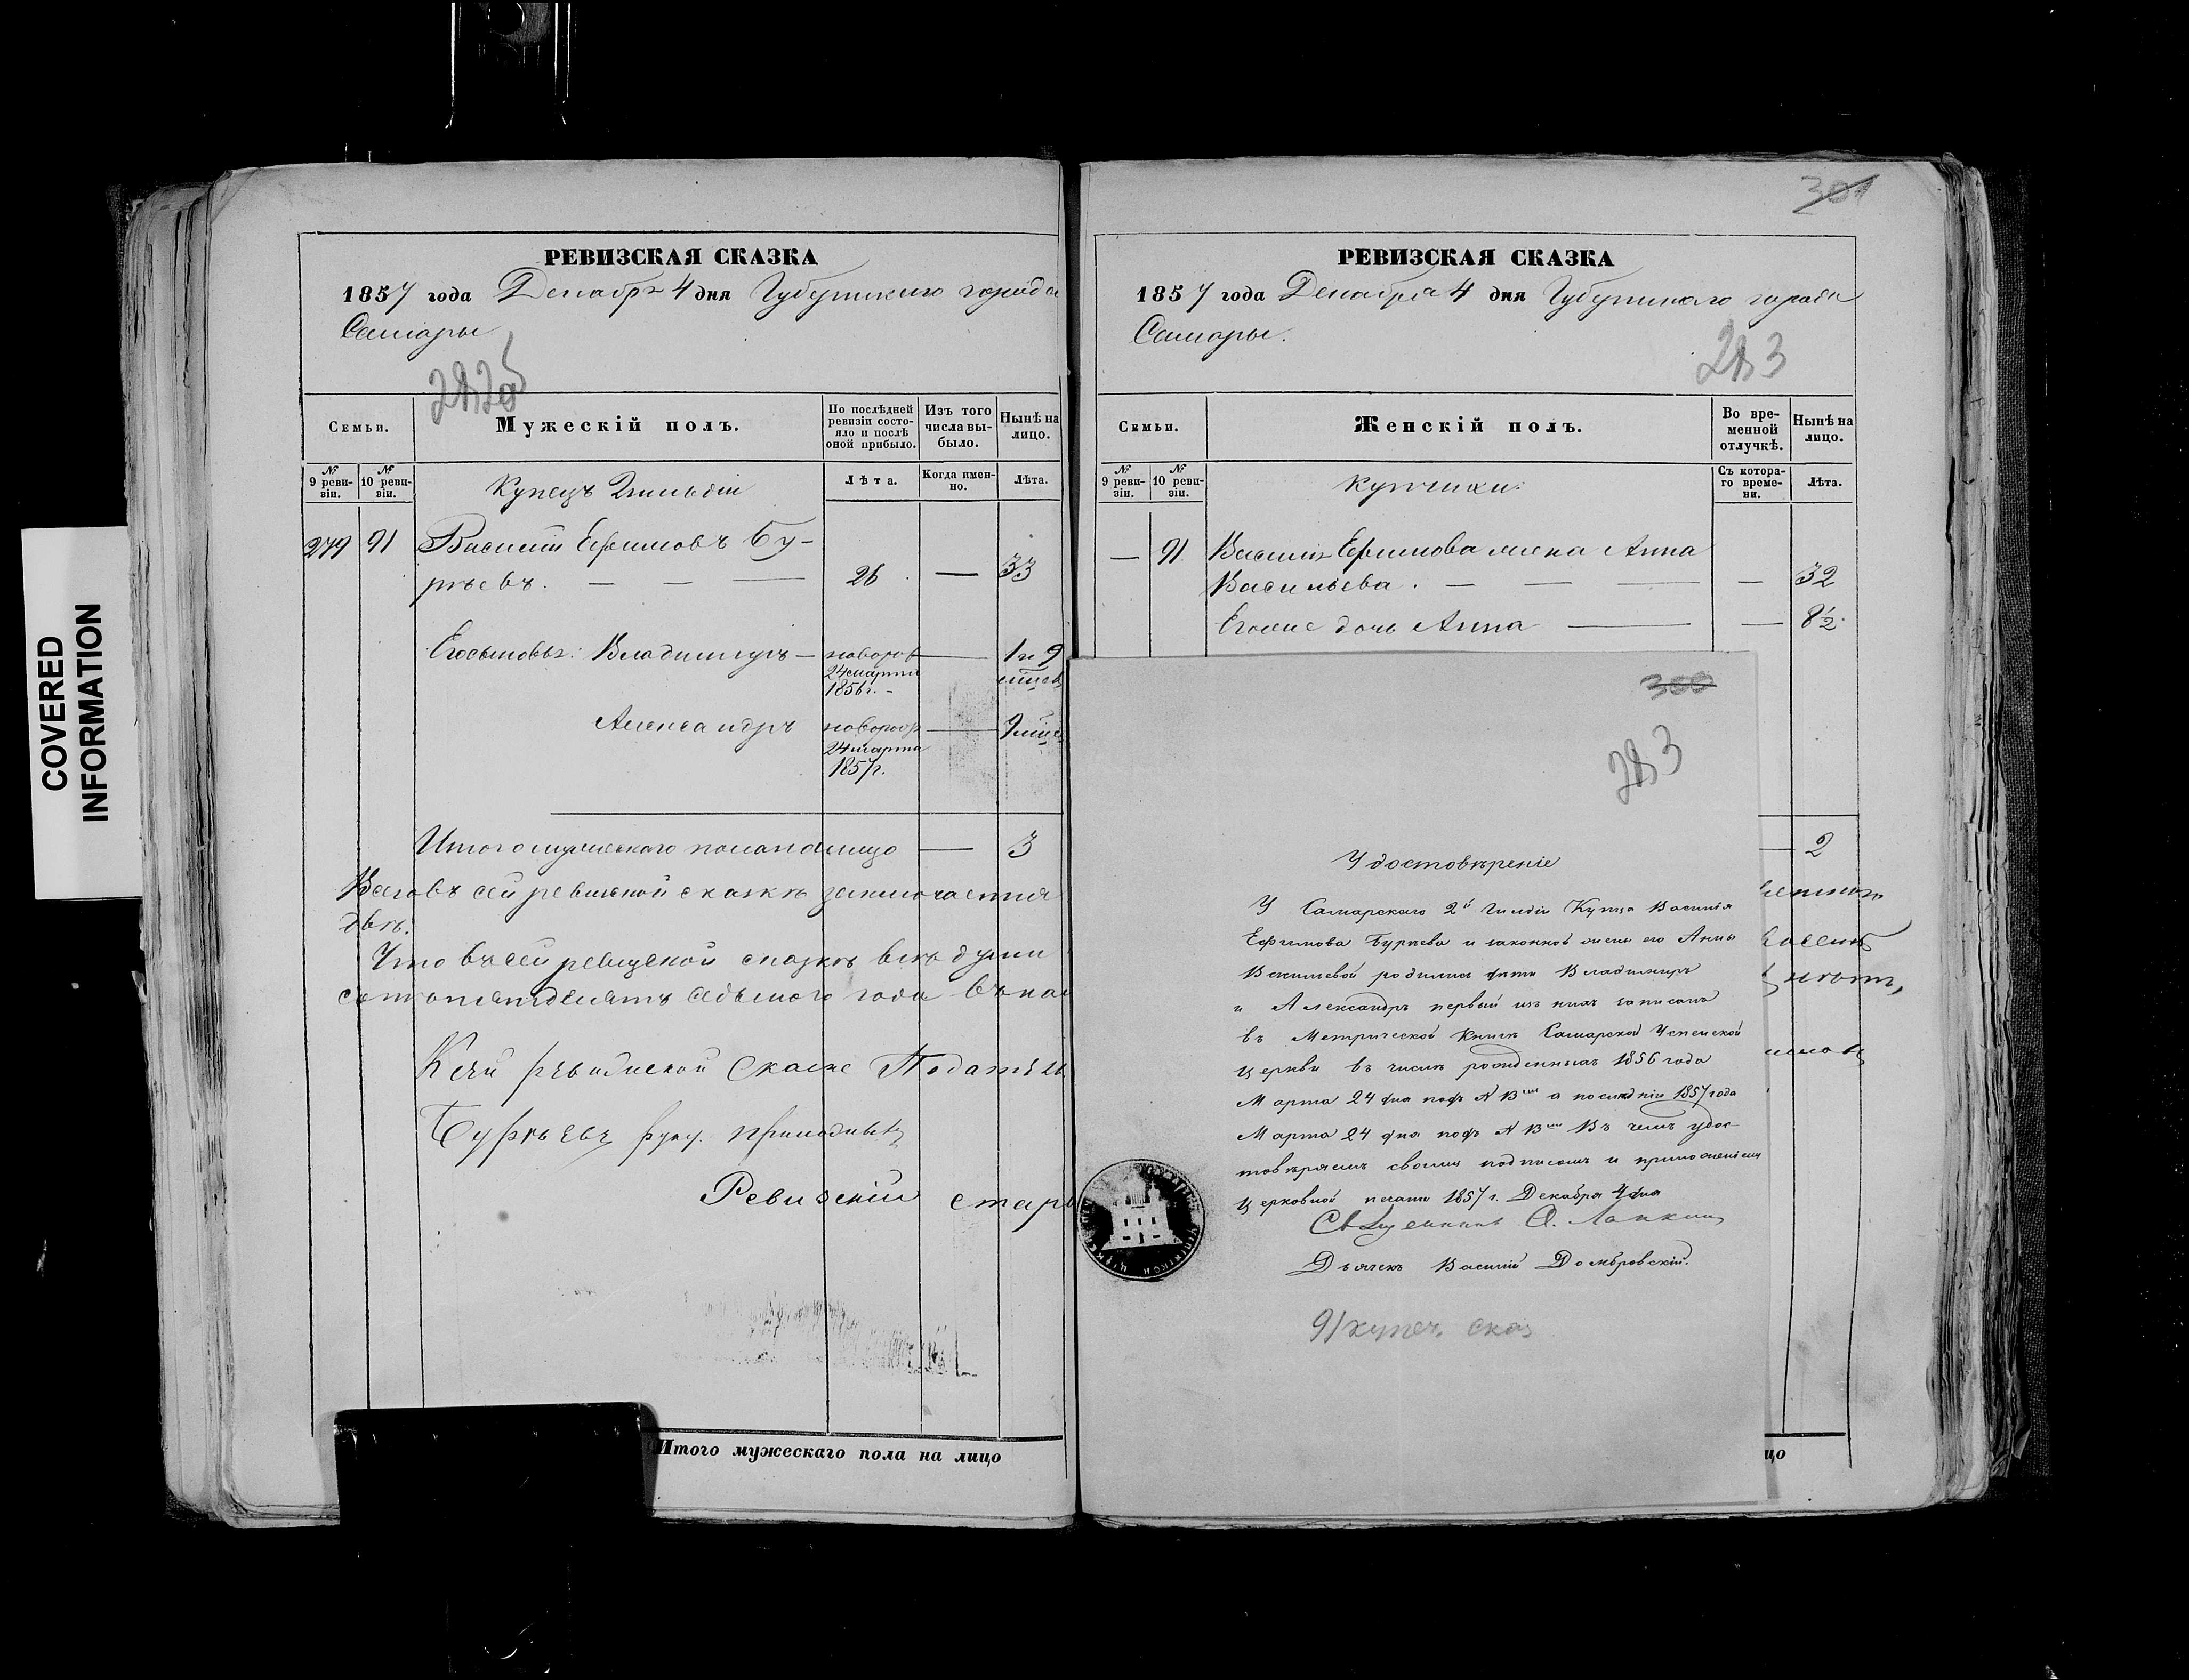 COVERED
INFORMATION
РЕВИЗСКАЯ СКАЗКА
1857 года Декабря 4 дня Губернскаго города
Самары
282об
Семьи.
Мужескій полъ.
По послѣдней ревизіи состояло и послѣ оной прибыло.
Изъ того числа выбыло.
Нынѣ на лицо.
№ 9 ревизіи.
№ 10 ревизіи.
Купецъ 2 гильдіи
Лѣта.
Когда именно.
Лѣта.
279 91 Василій Ефимовъ Бу-
рѣевъ. — — — 26 — 33
Егосыновья: Владимиръ — новорож — 1 и 9
24 марта мѣсев
1856 г. -
Александръ новорож — 9 мѣсе
24 марта
1857 г.
Итого мужескаго пола на лицо — 3
Всего въ сей ревизской сказкѣ заключается
двѣ.
Что въ сей ревизской сказкѣ всѣ души
сотъ пятдесятъ седьмого года въ на
Ксей ревизской Скаске Подател
Бурѣевъ руку приложилъ
Ревизскій стар
Итого мужескаго пола на лицо
301
РЕВИЗСКАЯ СКАЗКА
1857 года Декабря 4 дня Губернскаго города
Самары.
283
Семьи.
Женскій полъ.
Во временной отлучкѣ.
Нынѣ на лицо.
№ 9 ревизіи.
№ 10 ревизіи.
Купчихи:
Съ котораго времени.
Лѣта.
— 91 Василія Ефимова жена Анна
Васильева. — — — — 32
Егоже дочь Анна — — 8½
300
283
— 2
Удостовѣреніе
У Самарскаго 2й Гильдіи Купца Василія
Ефимова Бурѣева и законной жены его Анны
Васильевой родились дѣти Владимиръ
и Александръ первый изъ нихъ записанъ
въ Метрической книгѣ Самарской Успенской
церкви въ числѣ рожденныхъ 1856 года
Марта 24 дня подъ № 13мъ а послѣдній 1857 года
Марта 24 дня подъ № 13мъ Въ чемъ удос-
товѣряемъ своимъ подписомъ и приложеніемъ
церковной печати 1857 г. Декабря 4 дня
Священникъ
Дьячекъ Василій Домбровскій.
91 купеч. сказ
цо